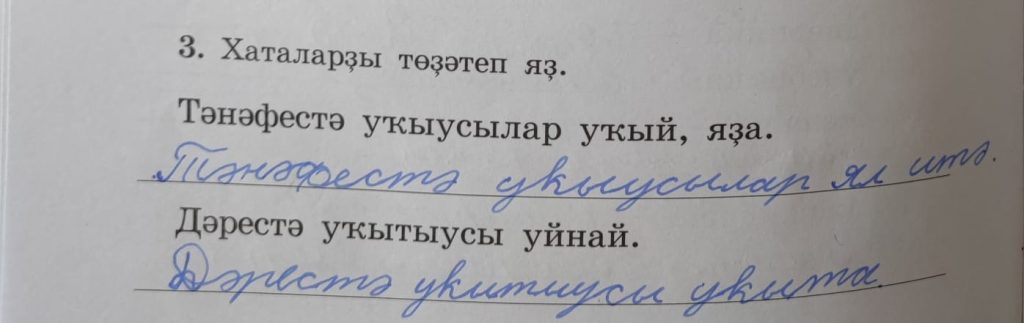 3. Хаталарҙы төҙәтеп яҙ.
Тәнәфестә уҡыусылар уҡый, яҙа.
Тәнәфестә укыусылар ял итә.
Дәрестә уҡытыусы уйнай.
Дәрестә укитиусы укыта.